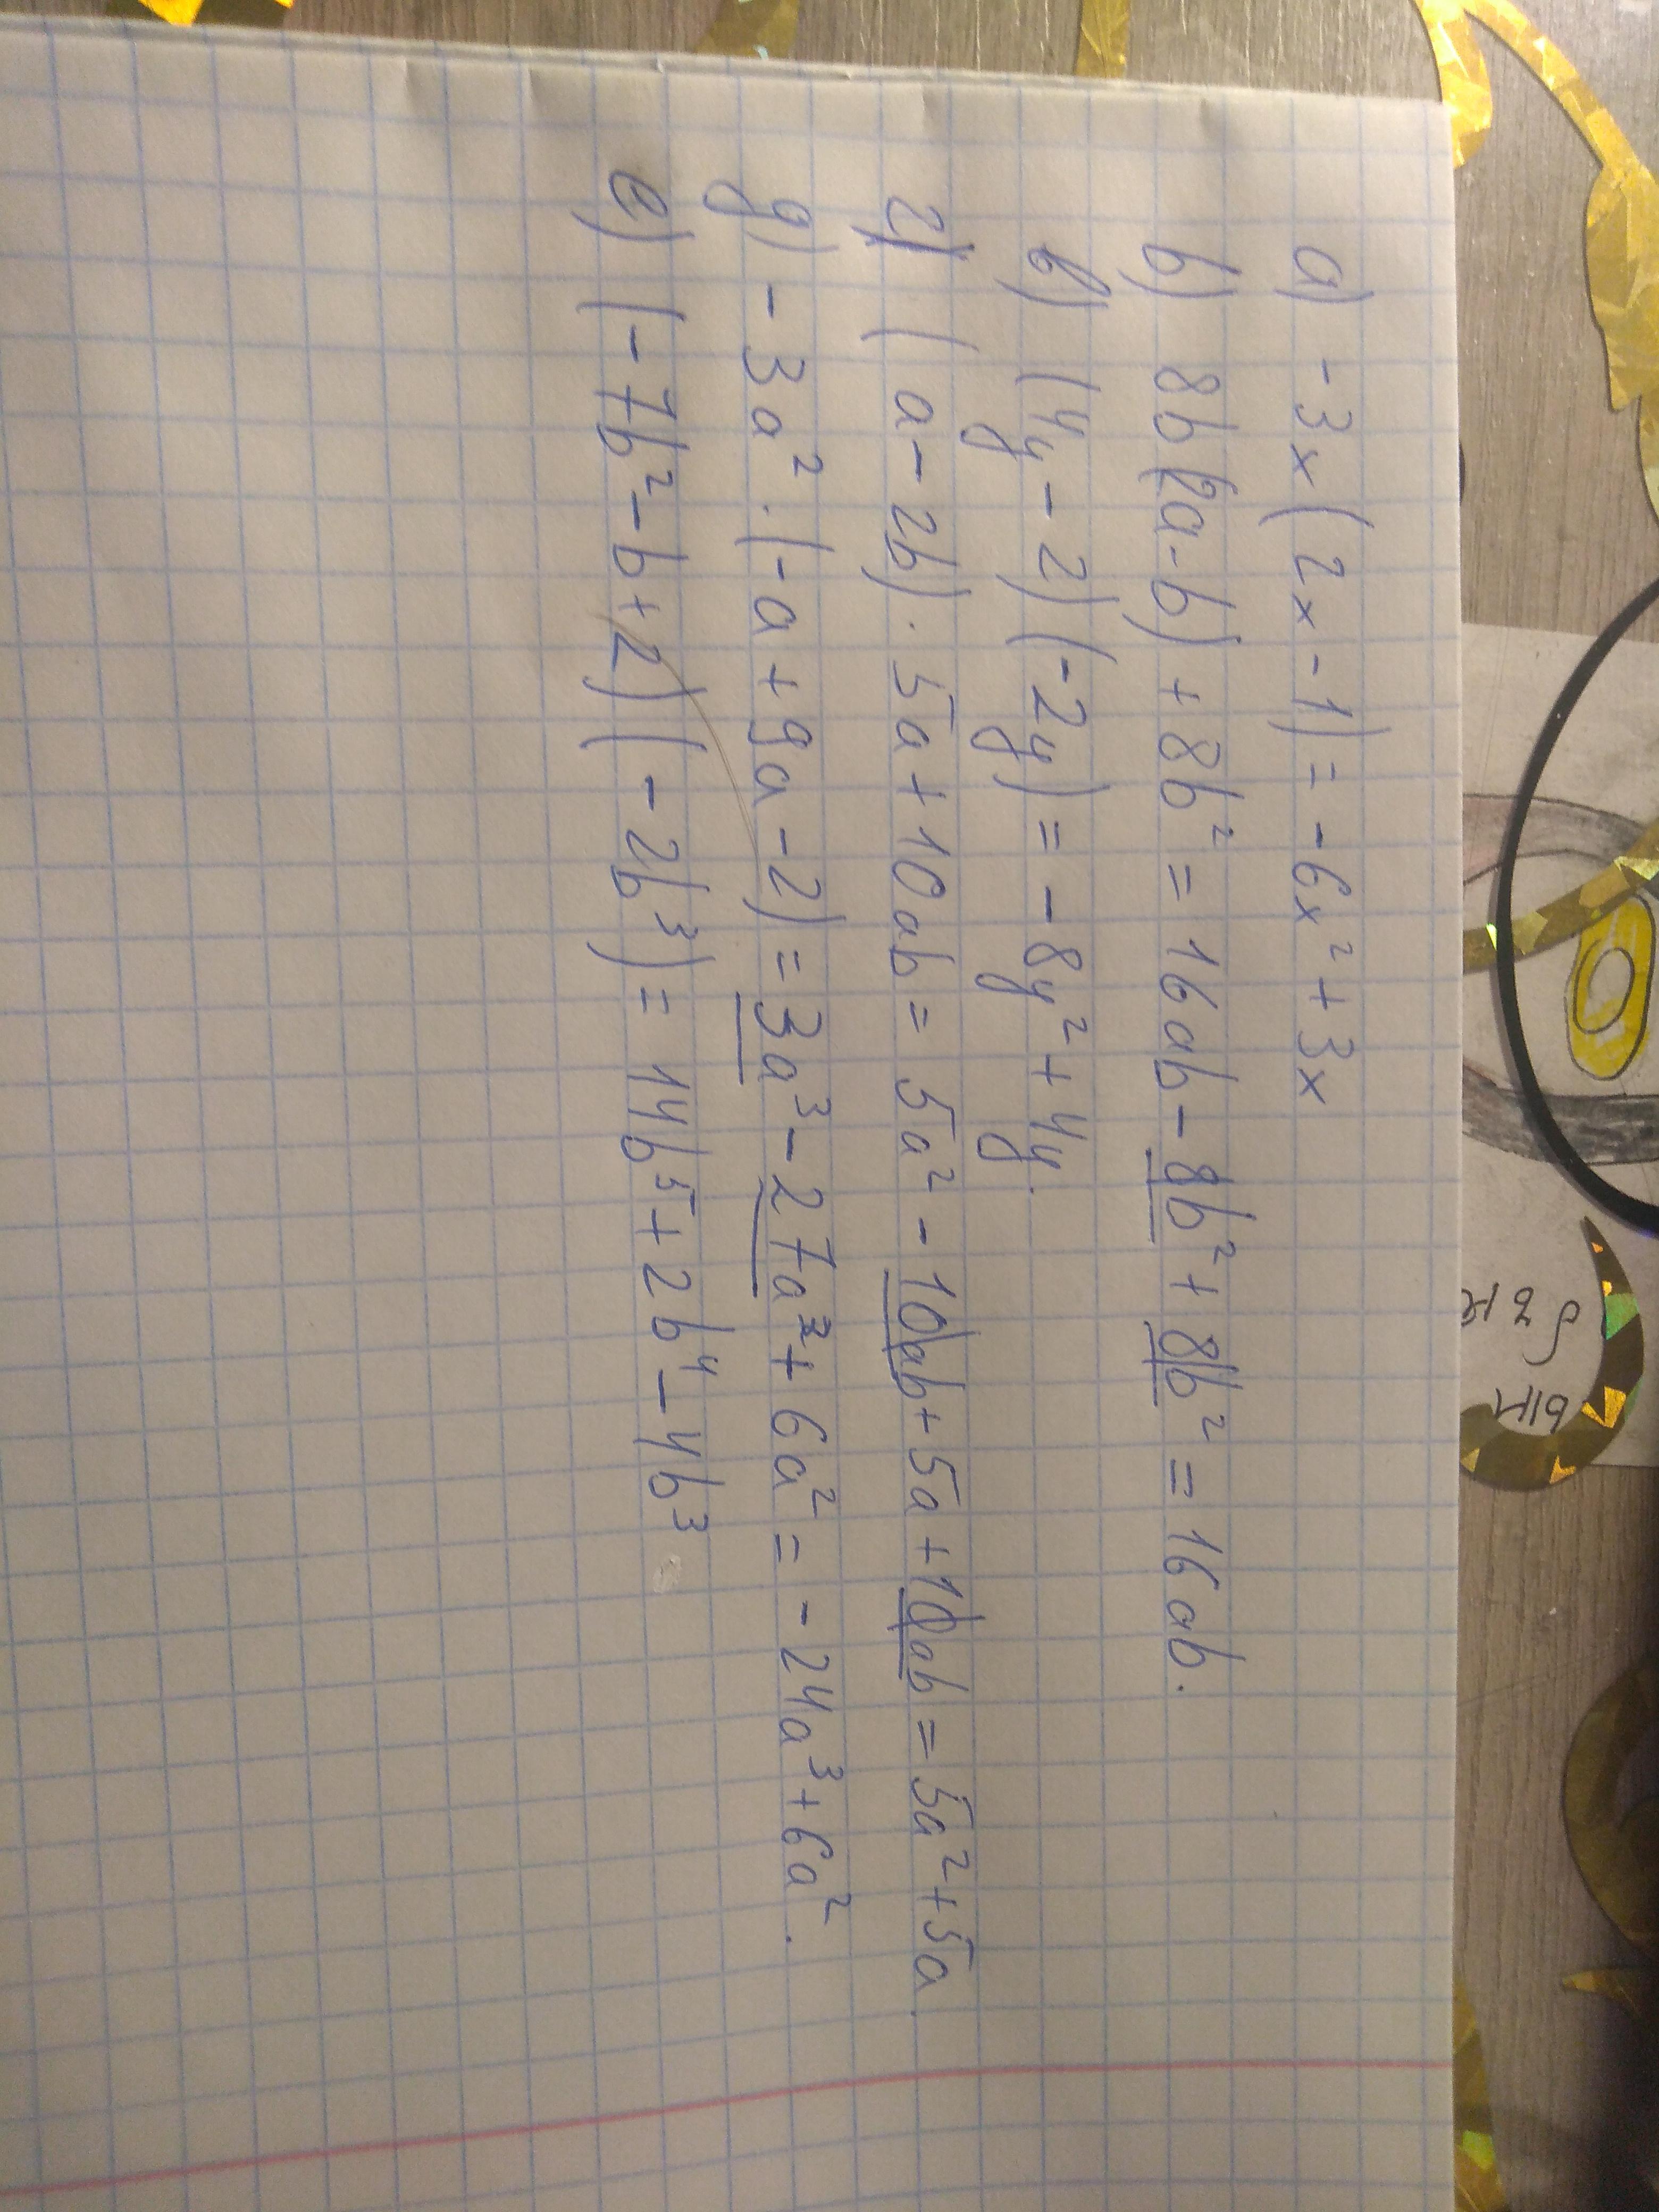 а) -3x(2x-1) = -6x² + 3x
б) 8b(2a-b) + 8b² = 16ab - 8b² + 8b² = 16ab.
в) (4y-2)(-2y) = -8y² + 4y.
г) (a-2b)·5a + 10ab = 5a² - 10ab + 5a + 10ab = 5a² + 5a
д) -3a²·(-a+9a-2) = 3a³ - 27a³ + 6a² = -24a³ + 6a².
е) (-7b²-b+2)(-2b³) = 14b⁵ + 2b⁴ - 4b³